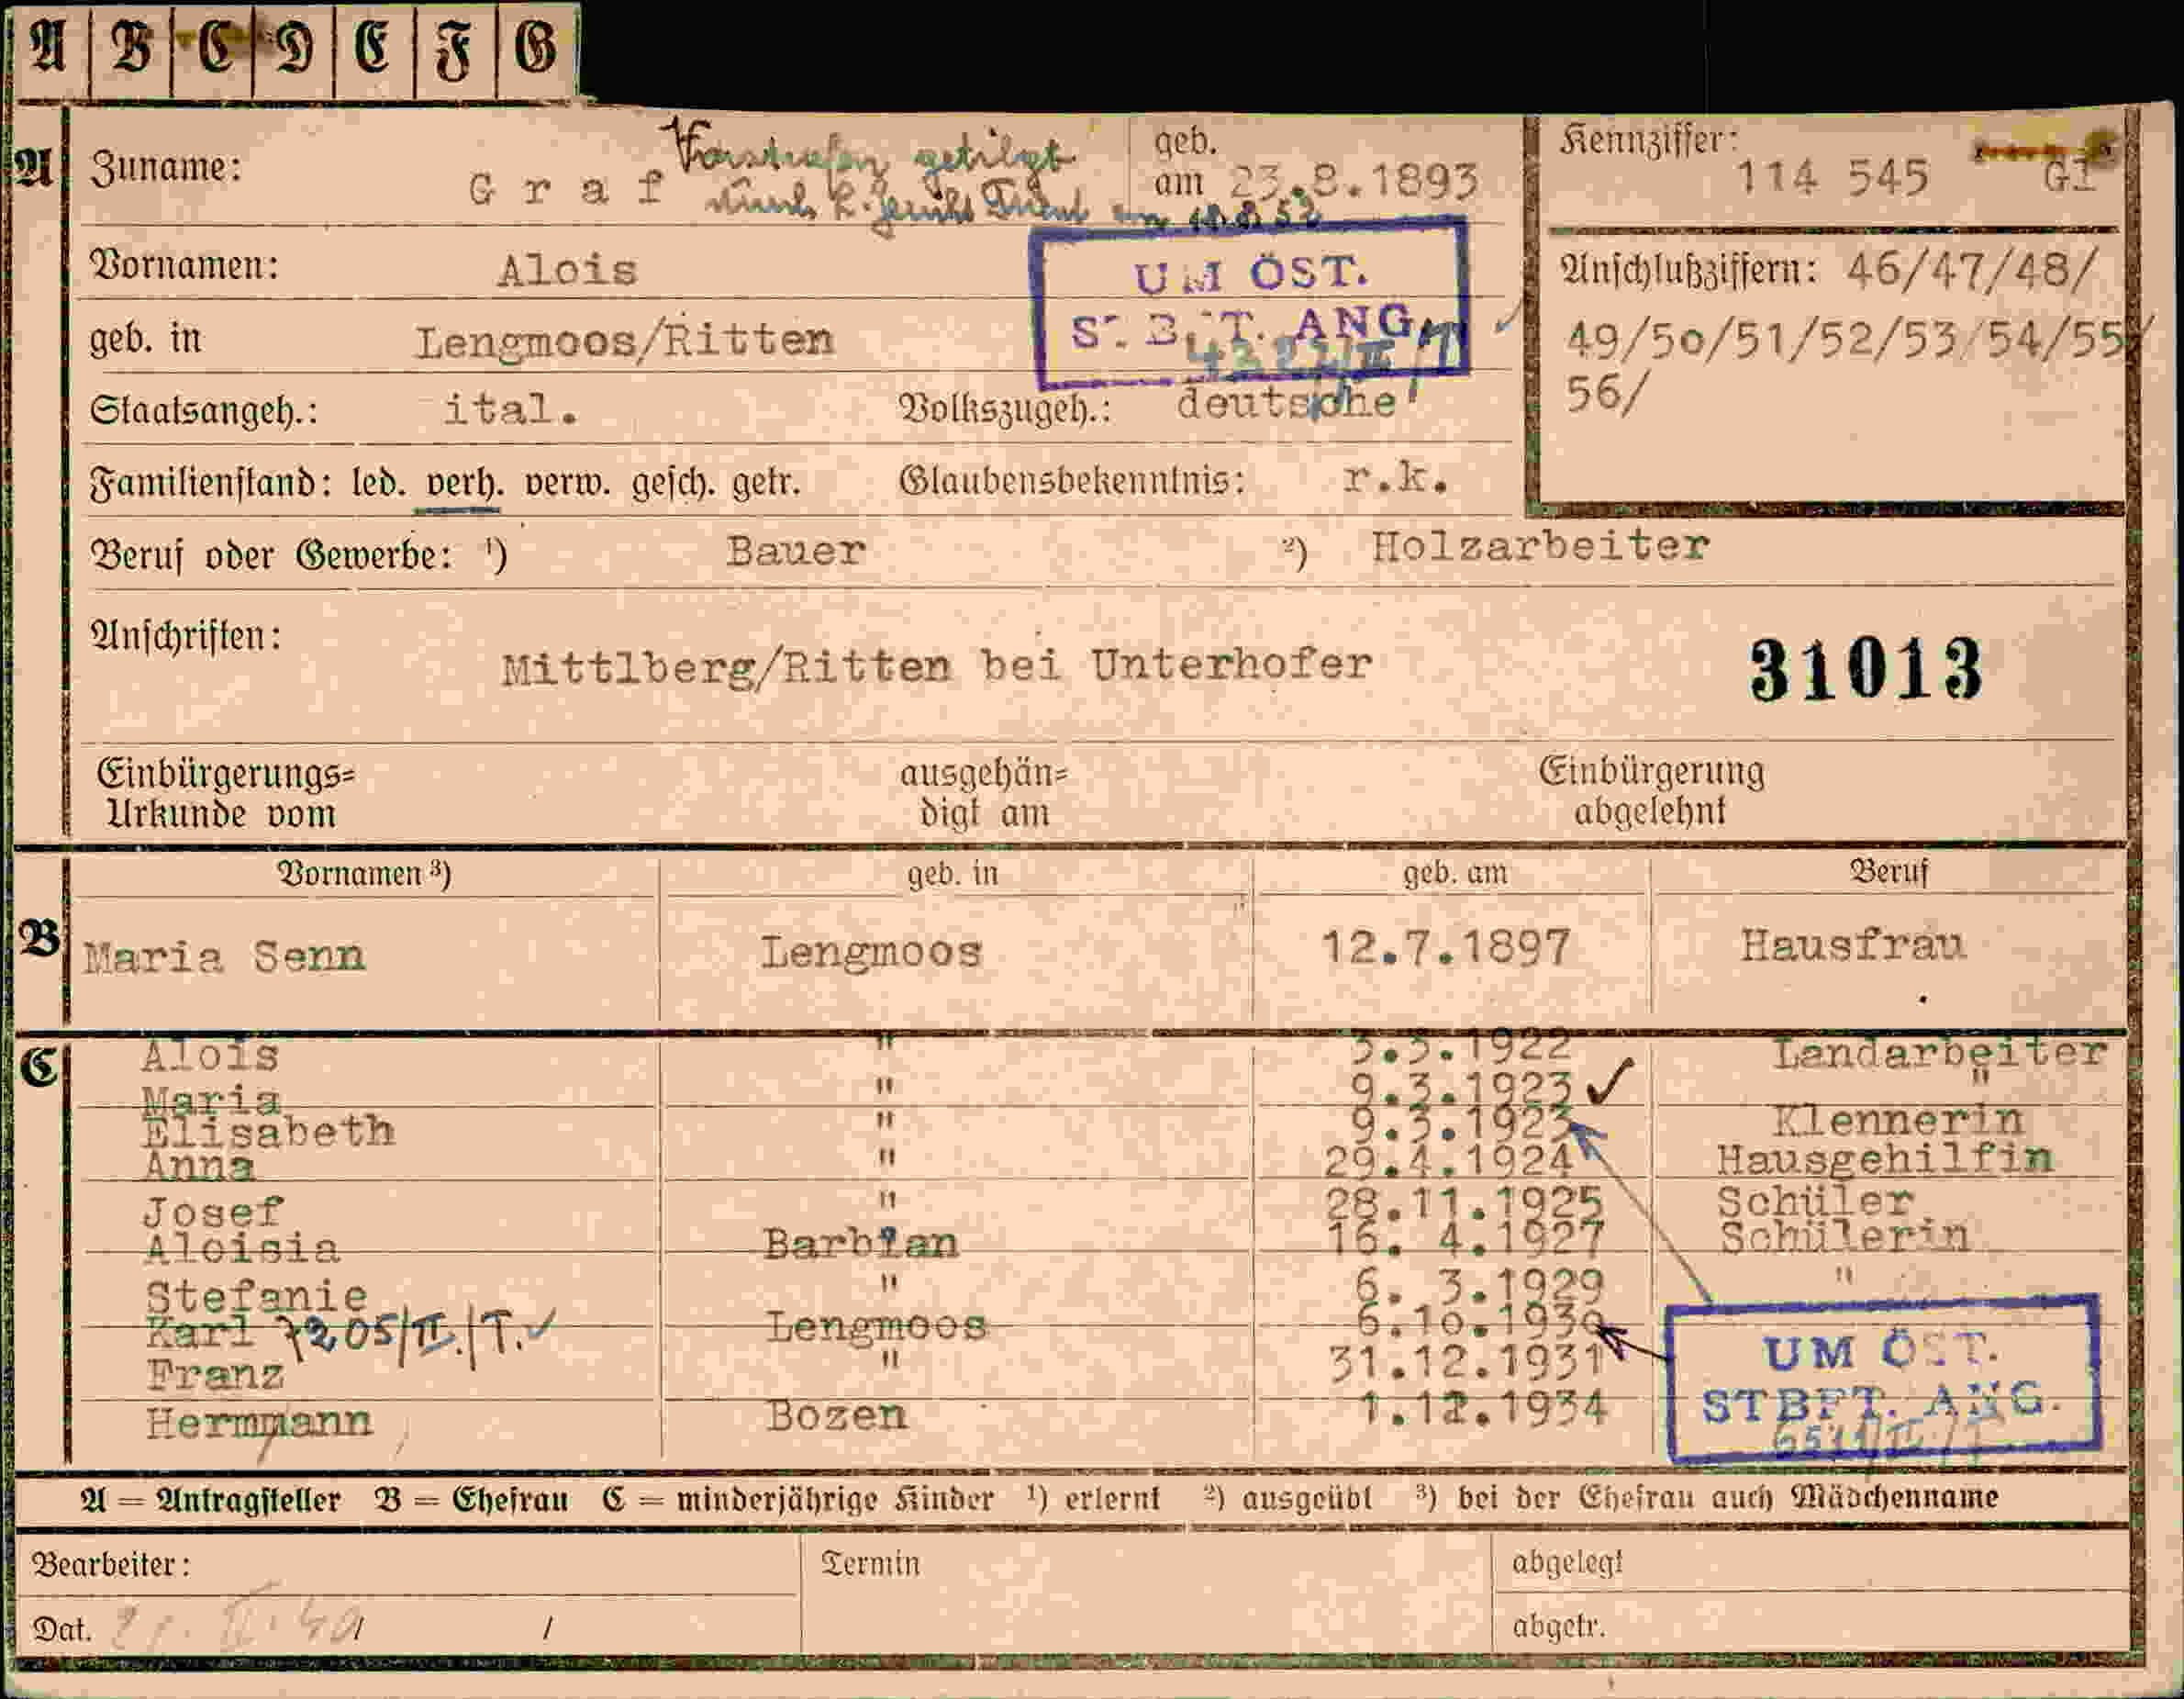 A B C D E F G
A Zuname: Graf Vorstrafen getilgt geb. am 23.8.1893 Kennziffer: 114 545 G1
durch K. Gericht Trient am 18.8.52
Vornamen: Alois UM ÖST. Anschlußziffern: 46/47/48/
geb. in Lengmoos/Ritten ST.B.FT. ANG. 49/50/51/52/53/54/55/
56/
Staatsangeh.: ital. Volkszugeh.: deutsche
Familienstand: led. verh. verw. gesch. getr. Glaubensbekenntnis: r.k.
Beruf oder Gewerbe: ¹) Bauer ²) Holzarbeiter
Anschriften: Mittlberg/Ritten bei Unterhofer 31013
Einbürgerungs= ausgehän= Einbürgerung
Urkunde vom digt am abgelehnt
Vornamen ³) geb. in geb. am Beruf
B Maria Senn Lengmoos 12.7.1897 Hausfrau
C Alois " 3.3.1922 Landarbeiter
Maria " 9.3.1923 ✓ "
Elisabeth " 9.3.1923 Klennerin
Anna " 29.4.1924 Hausgehilfin
Josef " 28.11.1925 Schüler
Aloisia Barbian 16. 4.1927 Schülerin
Stefanie " 6. 3.1929 "
Karl 7205/II./T. ✓ Lengmoos 6.10.1930
Franz " 31.12.1931 UM ÖST.
Hermmann Bozen 1.12.1934 STBFT. ANG.
A = Antragsteller B = Ehefrau C = minderjährige Kinder ¹) erlernt ²) ausgeübt ³) bei der Ehefrau auch Mädchenname
Bearbeiter: Termin abgelegt
Dat. / / abgetr.